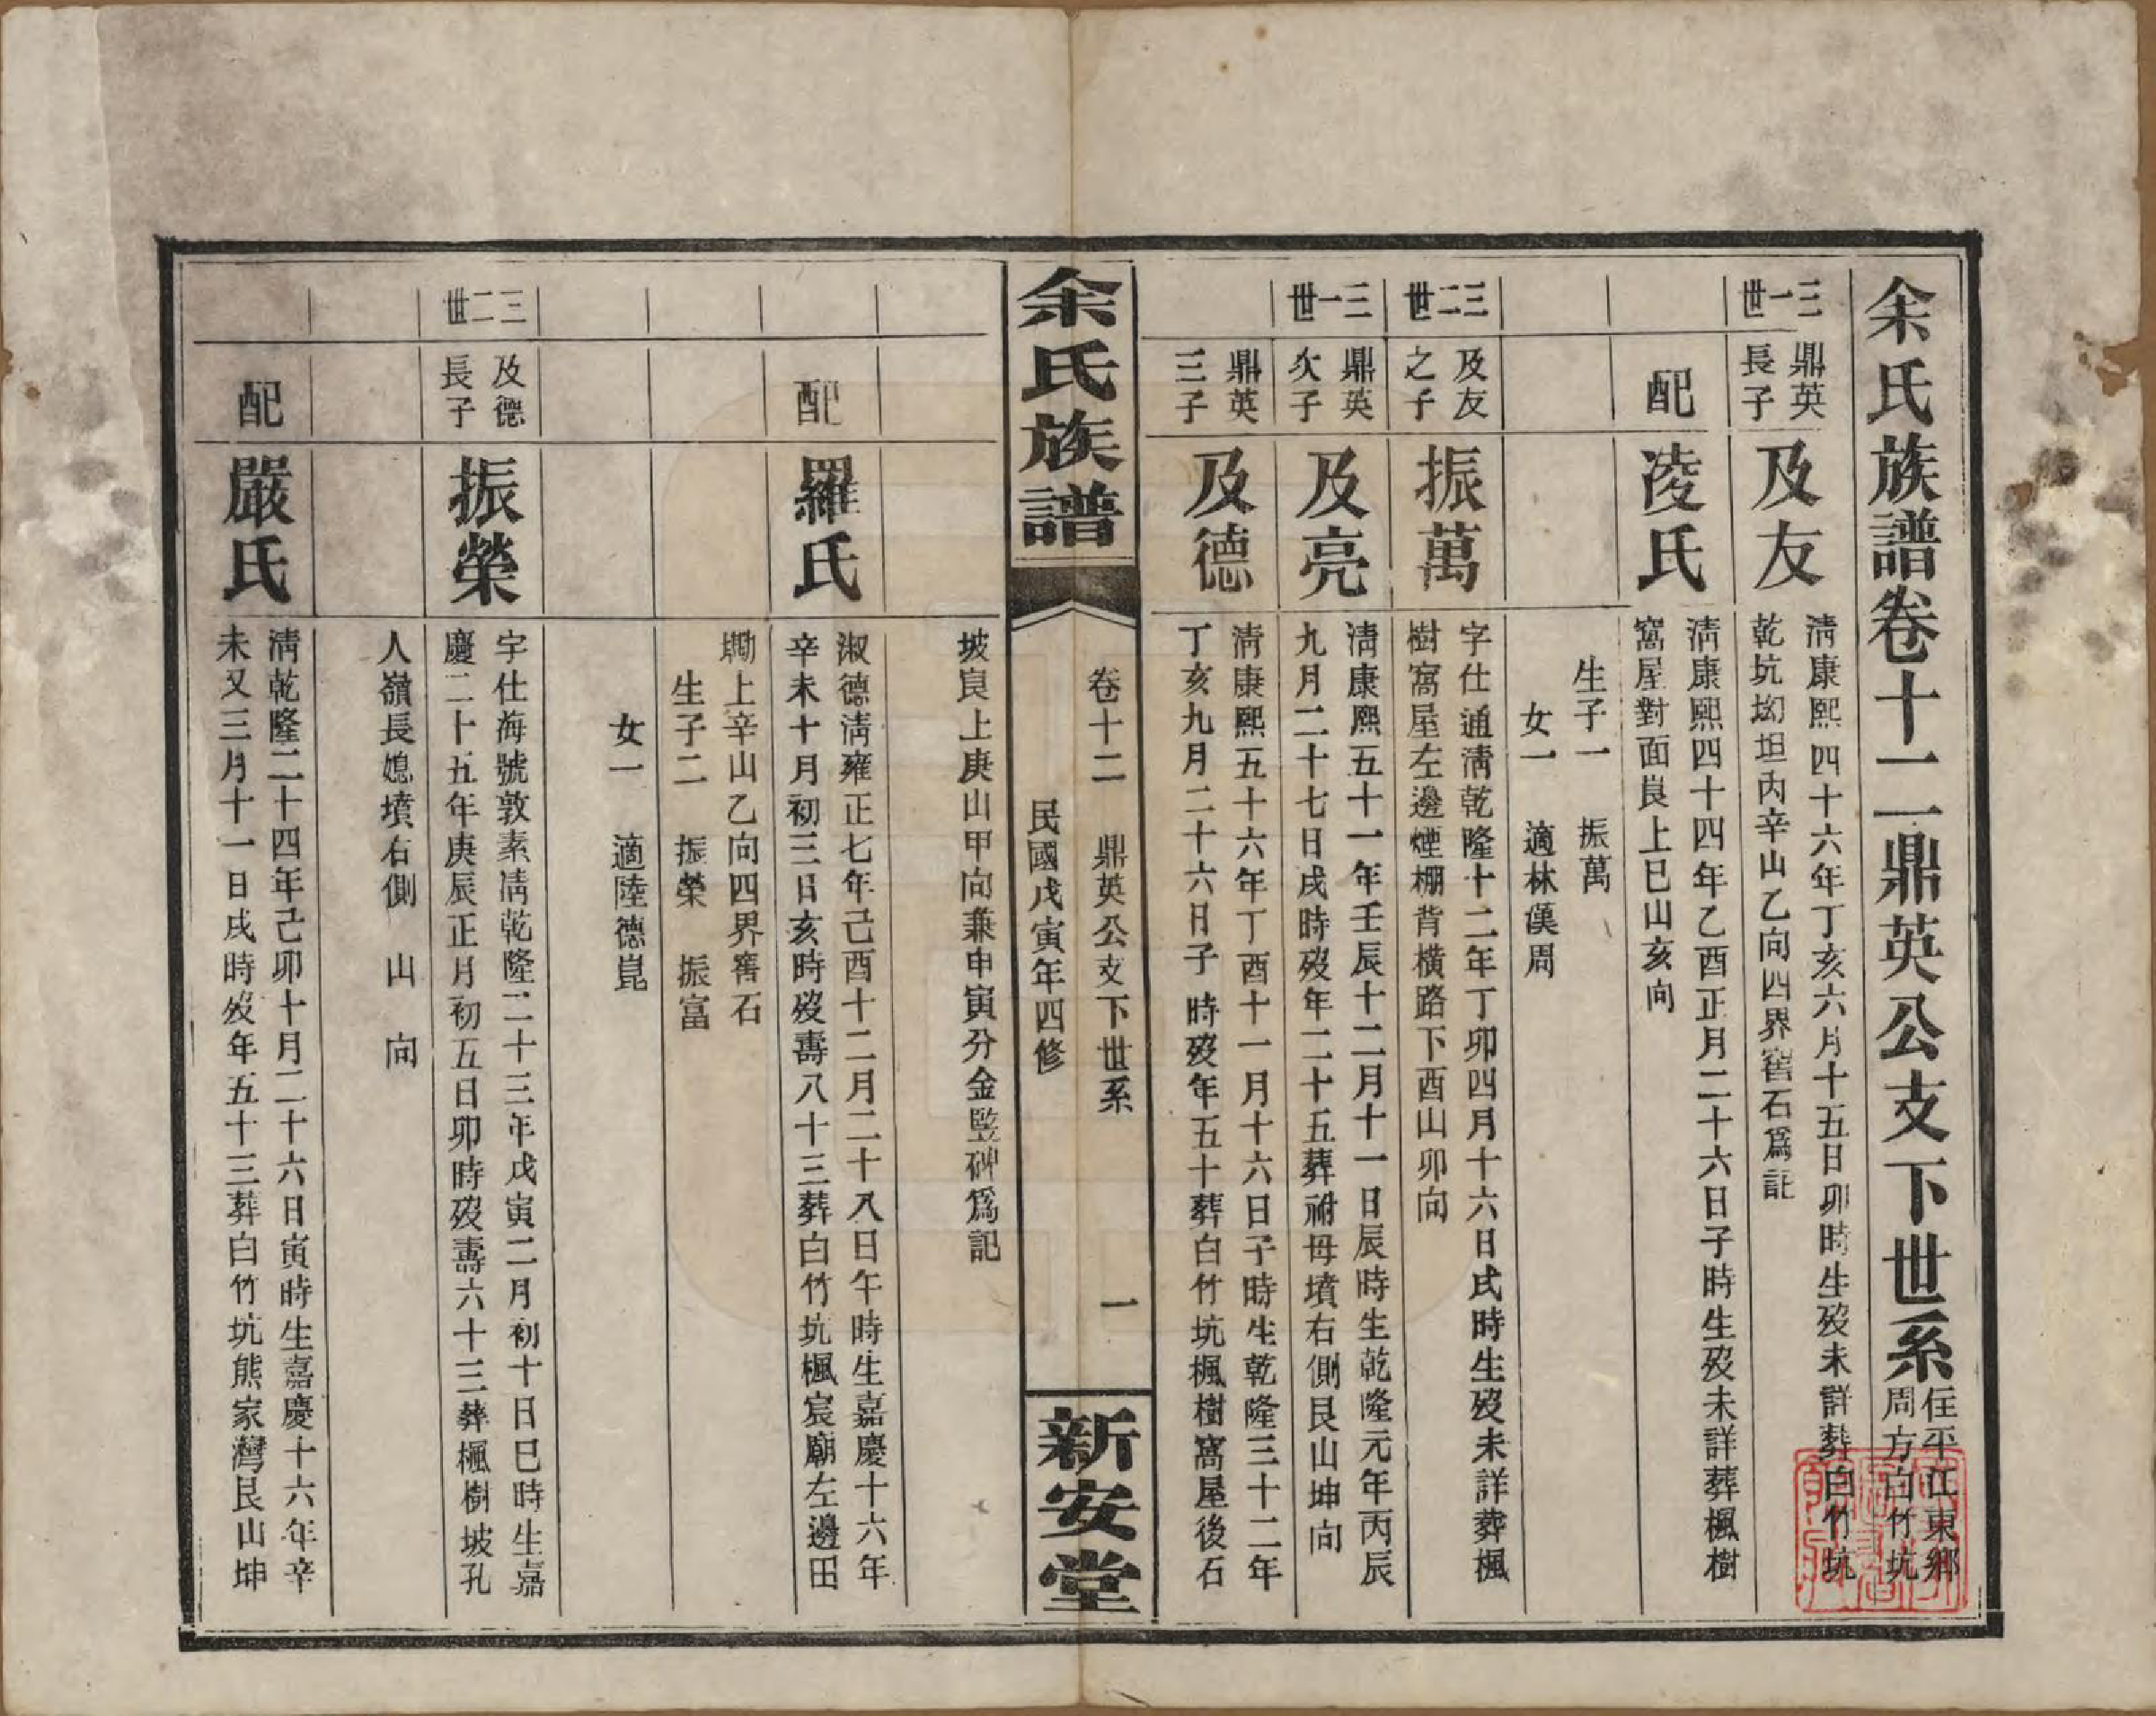 余氏族譜卷十二鼎英公支下世系
住平江東鄉
周方白竹坑
三一世
鼎英
長子
及友
清康熙四十六年丁亥六月十五日卯時生歿未詳葬白竹坑
乾坑坳坦內辛山乙向四界窖石爲記
配
凌氏
清康熙四十四年乙酉正月二十六日子時生歿未詳葬楓樹
窩屋對面艮上巳山亥向
生子一 振萬
女一 適林漢周
三二世
及友
之子
振萬
字仕通清乾隆十二年丁卯四月十六日戌時生歿未詳葬楓
樹窩屋左邊煙棚背橫路下酉山卯向
三一世
鼎英
次子
及亮
清康熙五十一年壬辰十二月十一日辰時生乾隆元年丙辰
九月二十七日戌時歿年二十五葬祔母墳右側艮山坤向
鼎英
三子
及德
清康熙五十六年丁酉十一月十六日子時生乾隆三十二年
丁亥九月二十六日子時歿年五十葬白竹坑楓樹窩屋後石
余氏族譜
卷十二 鼎英公支下世系 一
民國戊寅年四修
新安堂
坡艮上庚山甲向兼申寅分金竪碑爲記
配
羅氏
淑德清雍正七年己酉十二月二十八日午時生嘉慶十六年
辛未十月初三日亥時歿壽八十三葬白竹坑楓宸廟左邊田
墈上辛山乙向四界窖石
生子二 振榮 振富
女一 適陸德崑
三二世
及德
長子
振榮
字仕海號敦素清乾隆二十三年戊寅二月初十日巳時生嘉
慶二十五年庚辰正月初五日卯時歿壽六十三葬楓樹坡孔
人嶺長媳墳右側 山 向
配
嚴氏
清乾隆二十四年己卯十月二十六日寅時生嘉慶十六年辛
未又三月十一日戌時歿年五十三葬白竹坑熊家灣艮山坤